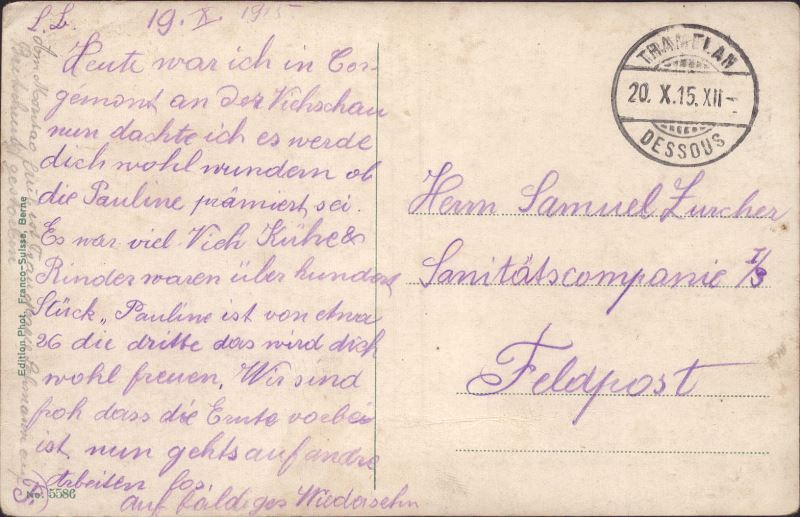 L. L. 19. X. 1915
Heute war ich in Cor-
gemont an der Viehschau
nun dachte ich es werde
dich wohl wundern ob
die Pauline prämiert sei.
Es war viel Vieh Kühe &
Rinder waren über hundert
Stück, Pauline ist von etwa
26 die dritte das wird dich
wohl freuen. Wir sind
froh dass die Ernte vorbei
ist, nun gehts auf andre
Arbeiten los.
auf baldiges Wiedersehn
TRAMELAN
20. X. 15. XII -
DESSOUS
Herrn Samuel Zurcher
Sanitätscompanie I/3
Feldpost
Edition Phot. Franco-Suisse, Berne
No. 5586